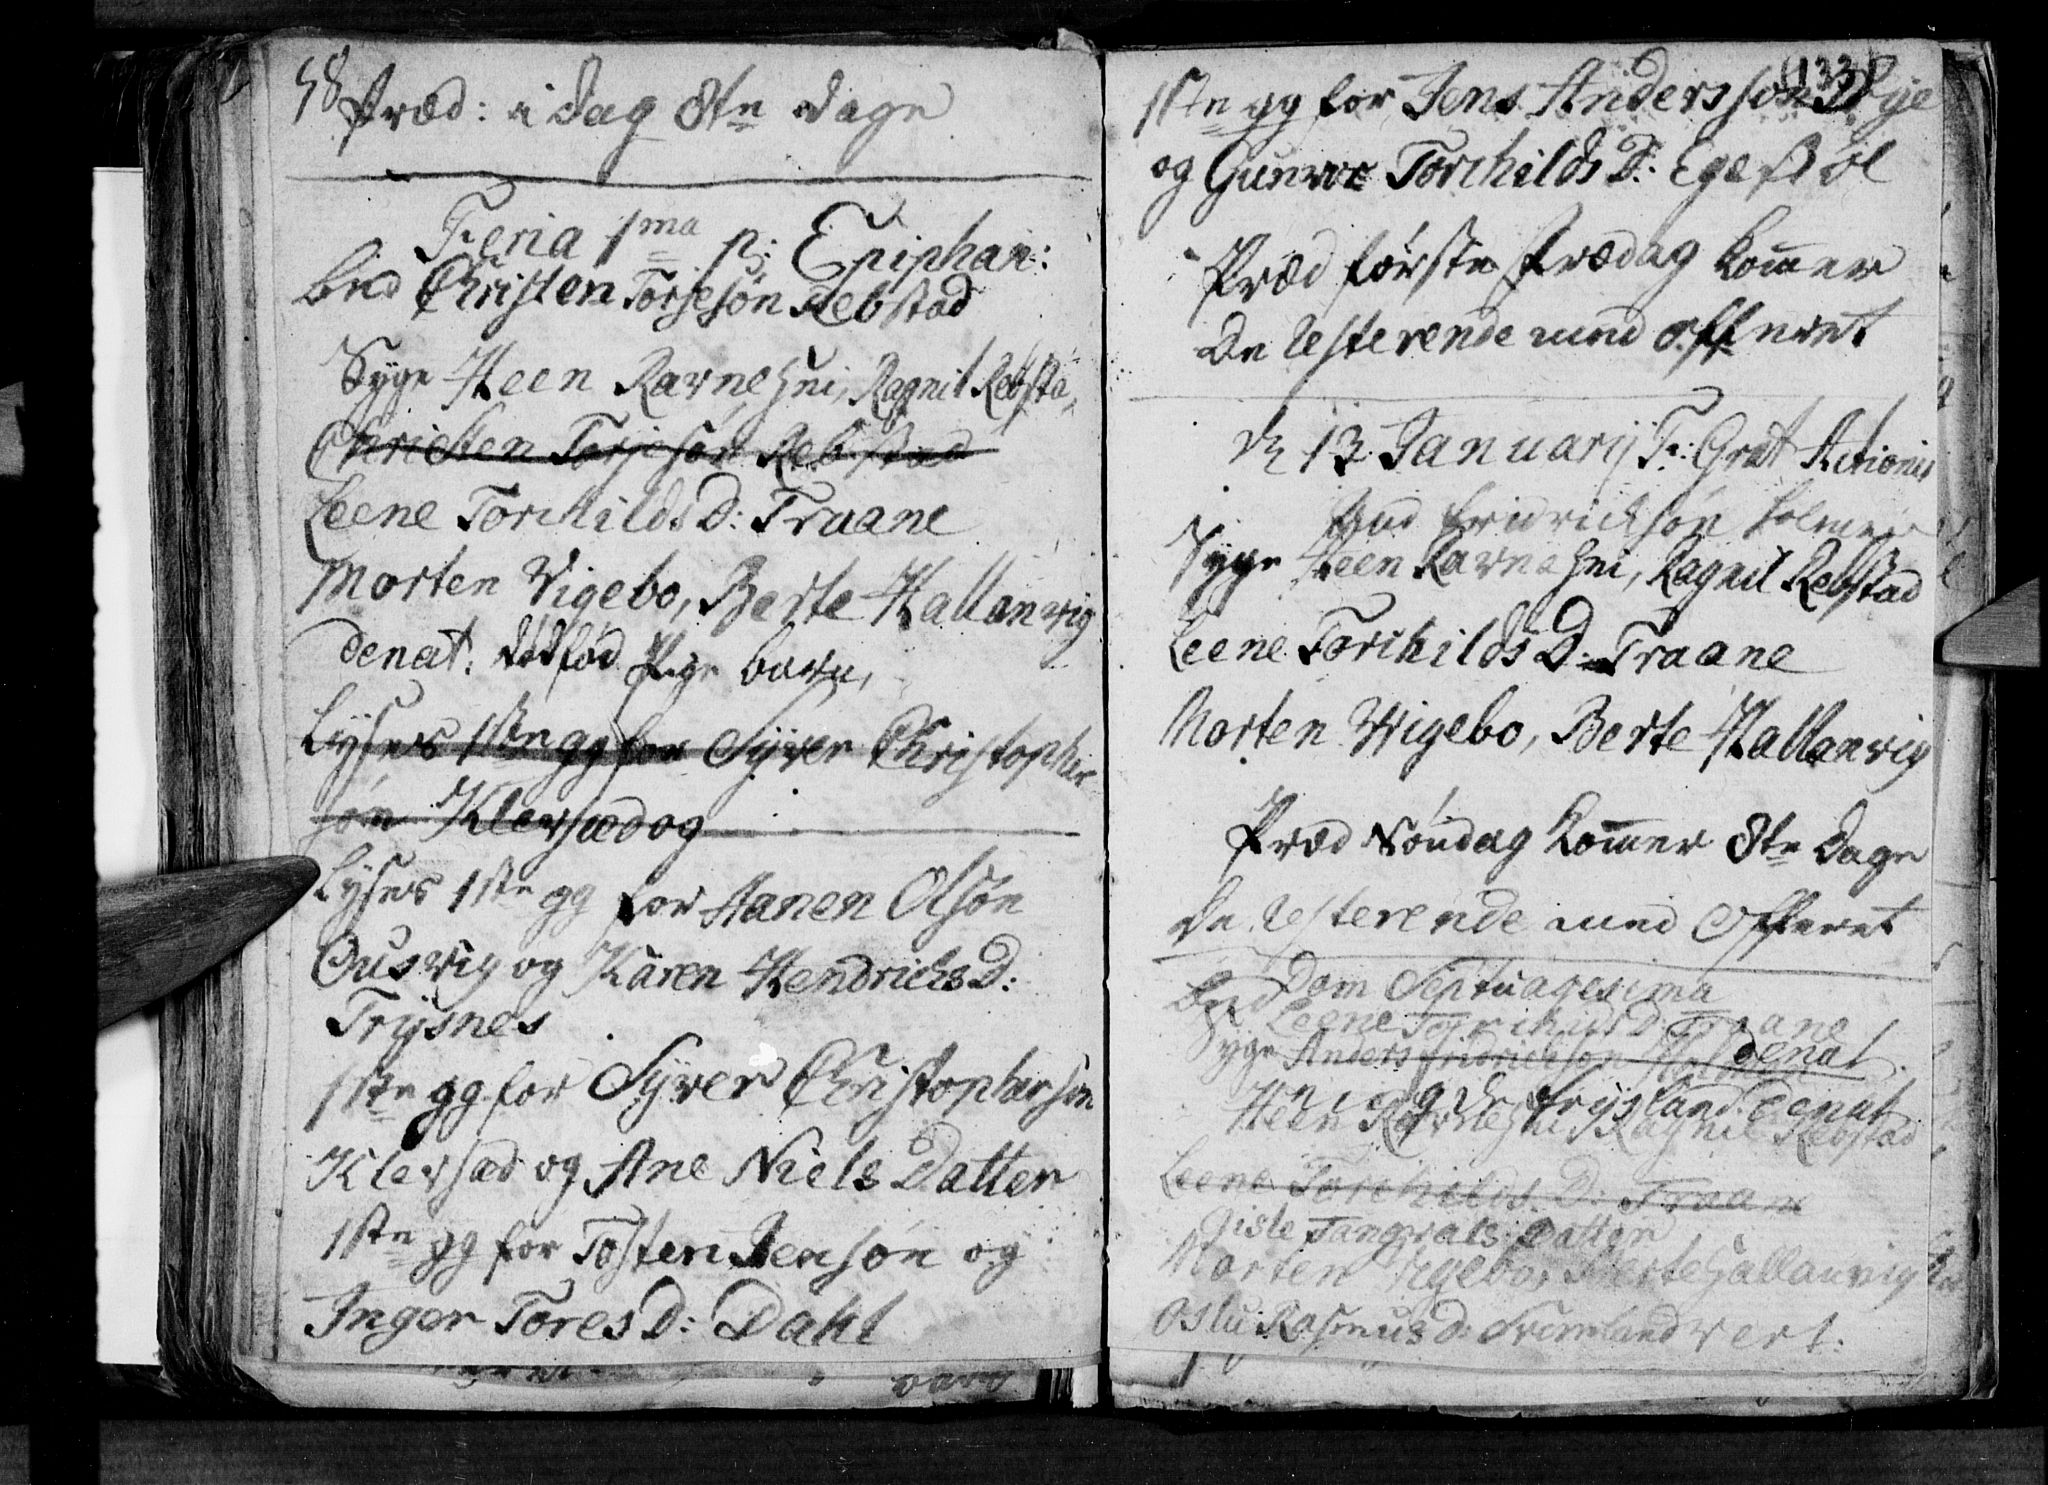 58
Præd: i dag 8te dage
Feria 1ma p: Epiphan:
bed Christen Torjesøn Rebstad
Syge Heen Ravnehei, Ragnil Rebsta
Christen Torjesøn Rebstad
Leene TorchildsD: Traane
Morten Vigebo, Berte Hallanvig
denat: dødfød Pige barn,
Lyses 1ste gg for Syver Christopher
søn Klevsæd og
Lyses 1ste gg for Hanen Olsøn
Ousvig og Karen HendrichsD:
Trysnes
1ste gg for Syver Christophersøn
Klevsæd og Ane Niels Datter
1ste gg for Tosten Jensøn og
Inger ToresD: Dahl
133
1ste gg for Jens Andersson Rye
og Gunvor TorchildsD: Egebøl
Præd første Fredag kommer
De resterende med offeret
dn 13 Januarij F: Grat Actionis
Fridrichsøn Holmen
Syge Heen Ravnehei, Ragnil Rebstad
Leene TorchildsD: Traane
Morten Wigebo, Berte Hallanvig
Præd Søndag kommer 8te dage
De resterende med Offeret
Dom Septuagesima
bed Leene TorchildsD: Traane
Syge Anders Fridrichsøn denat
Frysland denat
Heen Ravnehei, Ragnil Rebstad
Leene Torchilds D: Traan
Gisle Tangvals Datter
Morten Vigebo, Berte Hallanvig
Oslu RasmusD: